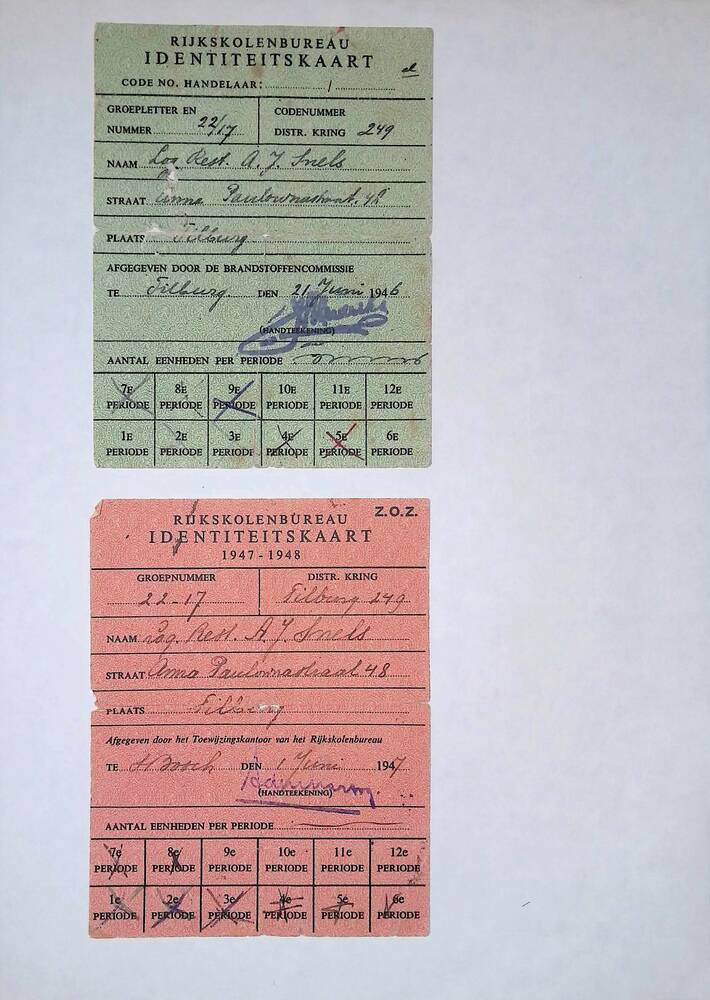 RIJKSKOLENBUREAU
IDENTITEITSKAART
CODE NO. HANDELAAR: /
GROEPLETTER EN CODENUMMER
NUMMER 22/17 DISTR. KRING 249
NAAM Rest. A. J. Snels
STRAAT Anna Paulownastraat. 42
PLAATS Tilburg
AFGEGEVEN DOOR DE BRANDSTOFFENCOMMISSIE
TE Tilburg. DEN 21 Juni 1946
(HANDTEEKENING)
AANTAL EENHEDEN PER PERIODE
7E 8E 9E 10E 11E 12E
PERIODE PERIODE PERIODE PERIODE PERIODE PERIODE
1E 2E 3E 4E 5E 6E
PERIODE PERIODE PERIODE PERIODE PERIODE PERIODE
Z.O.Z.
RIJKSKOLENBUREAU
IDENTITEITSKAART
1947-1948
GROEPNUMMER DISTR. KRING
22-17 Tilburg 249
NAAM Rest. A. J. Snels
STRAAT Anna Paulownastraat 48
PLAATS Tilburg
Afgegeven door het Toewijzingskantoor van het Rijkskolenbureau
TE H Bosch DEN 1 Juni 1947
(HANDTEEKENING)
AANTAL EENHEDEN PER PERIODE
7e 8e 9e 10e 11e 12e
PERIODE PERIODE PERIODE PERIODE PERIODE PERIODE
1e 2e 3e 4e 5e 6e
PERIODE PERIODE PERIODE PERIODE PERIODE PERIODE